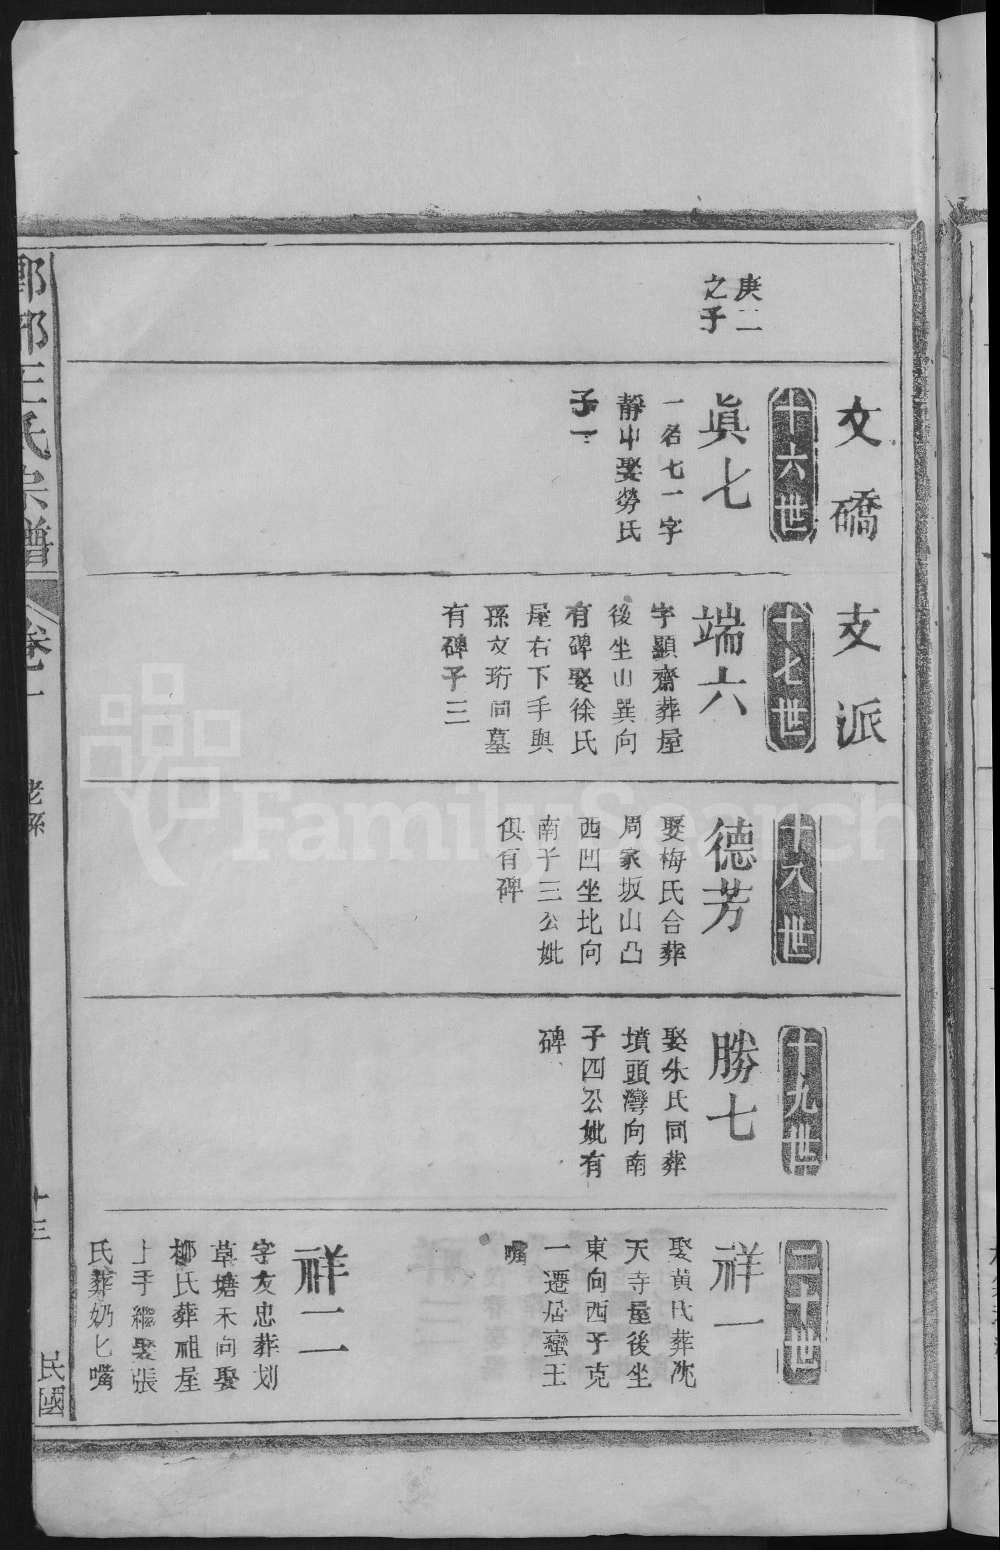 文礄支派
庚二
之子
十六世
眞七
一名七一字
靜中娶勞氏
子一
十七世
端六
字顯齋葬屋
後坐山巽向
有碑娶徐氏
屋右下手與
孫文珩同墓
有碑子三
十八世
德芳
娶梅氏合葬
周家坂山凸
西凹坐北向
南子三公妣
俱有碑
十九世
勝七
娶朱氏同葬
墳頭灣向南
子四公妣有
碑
二十世
祥一
娶黃氏葬沈
天寺屋後坐
東向西子克
一遷居蠻王
嘴
祥二
字友忠葬划
草塘禾向娶
柳氏葬祖屋
上手繼娶張
氏葬奶匕嘴
王氏宗譜
卷一
老孫
十三
民國
FamilySearch